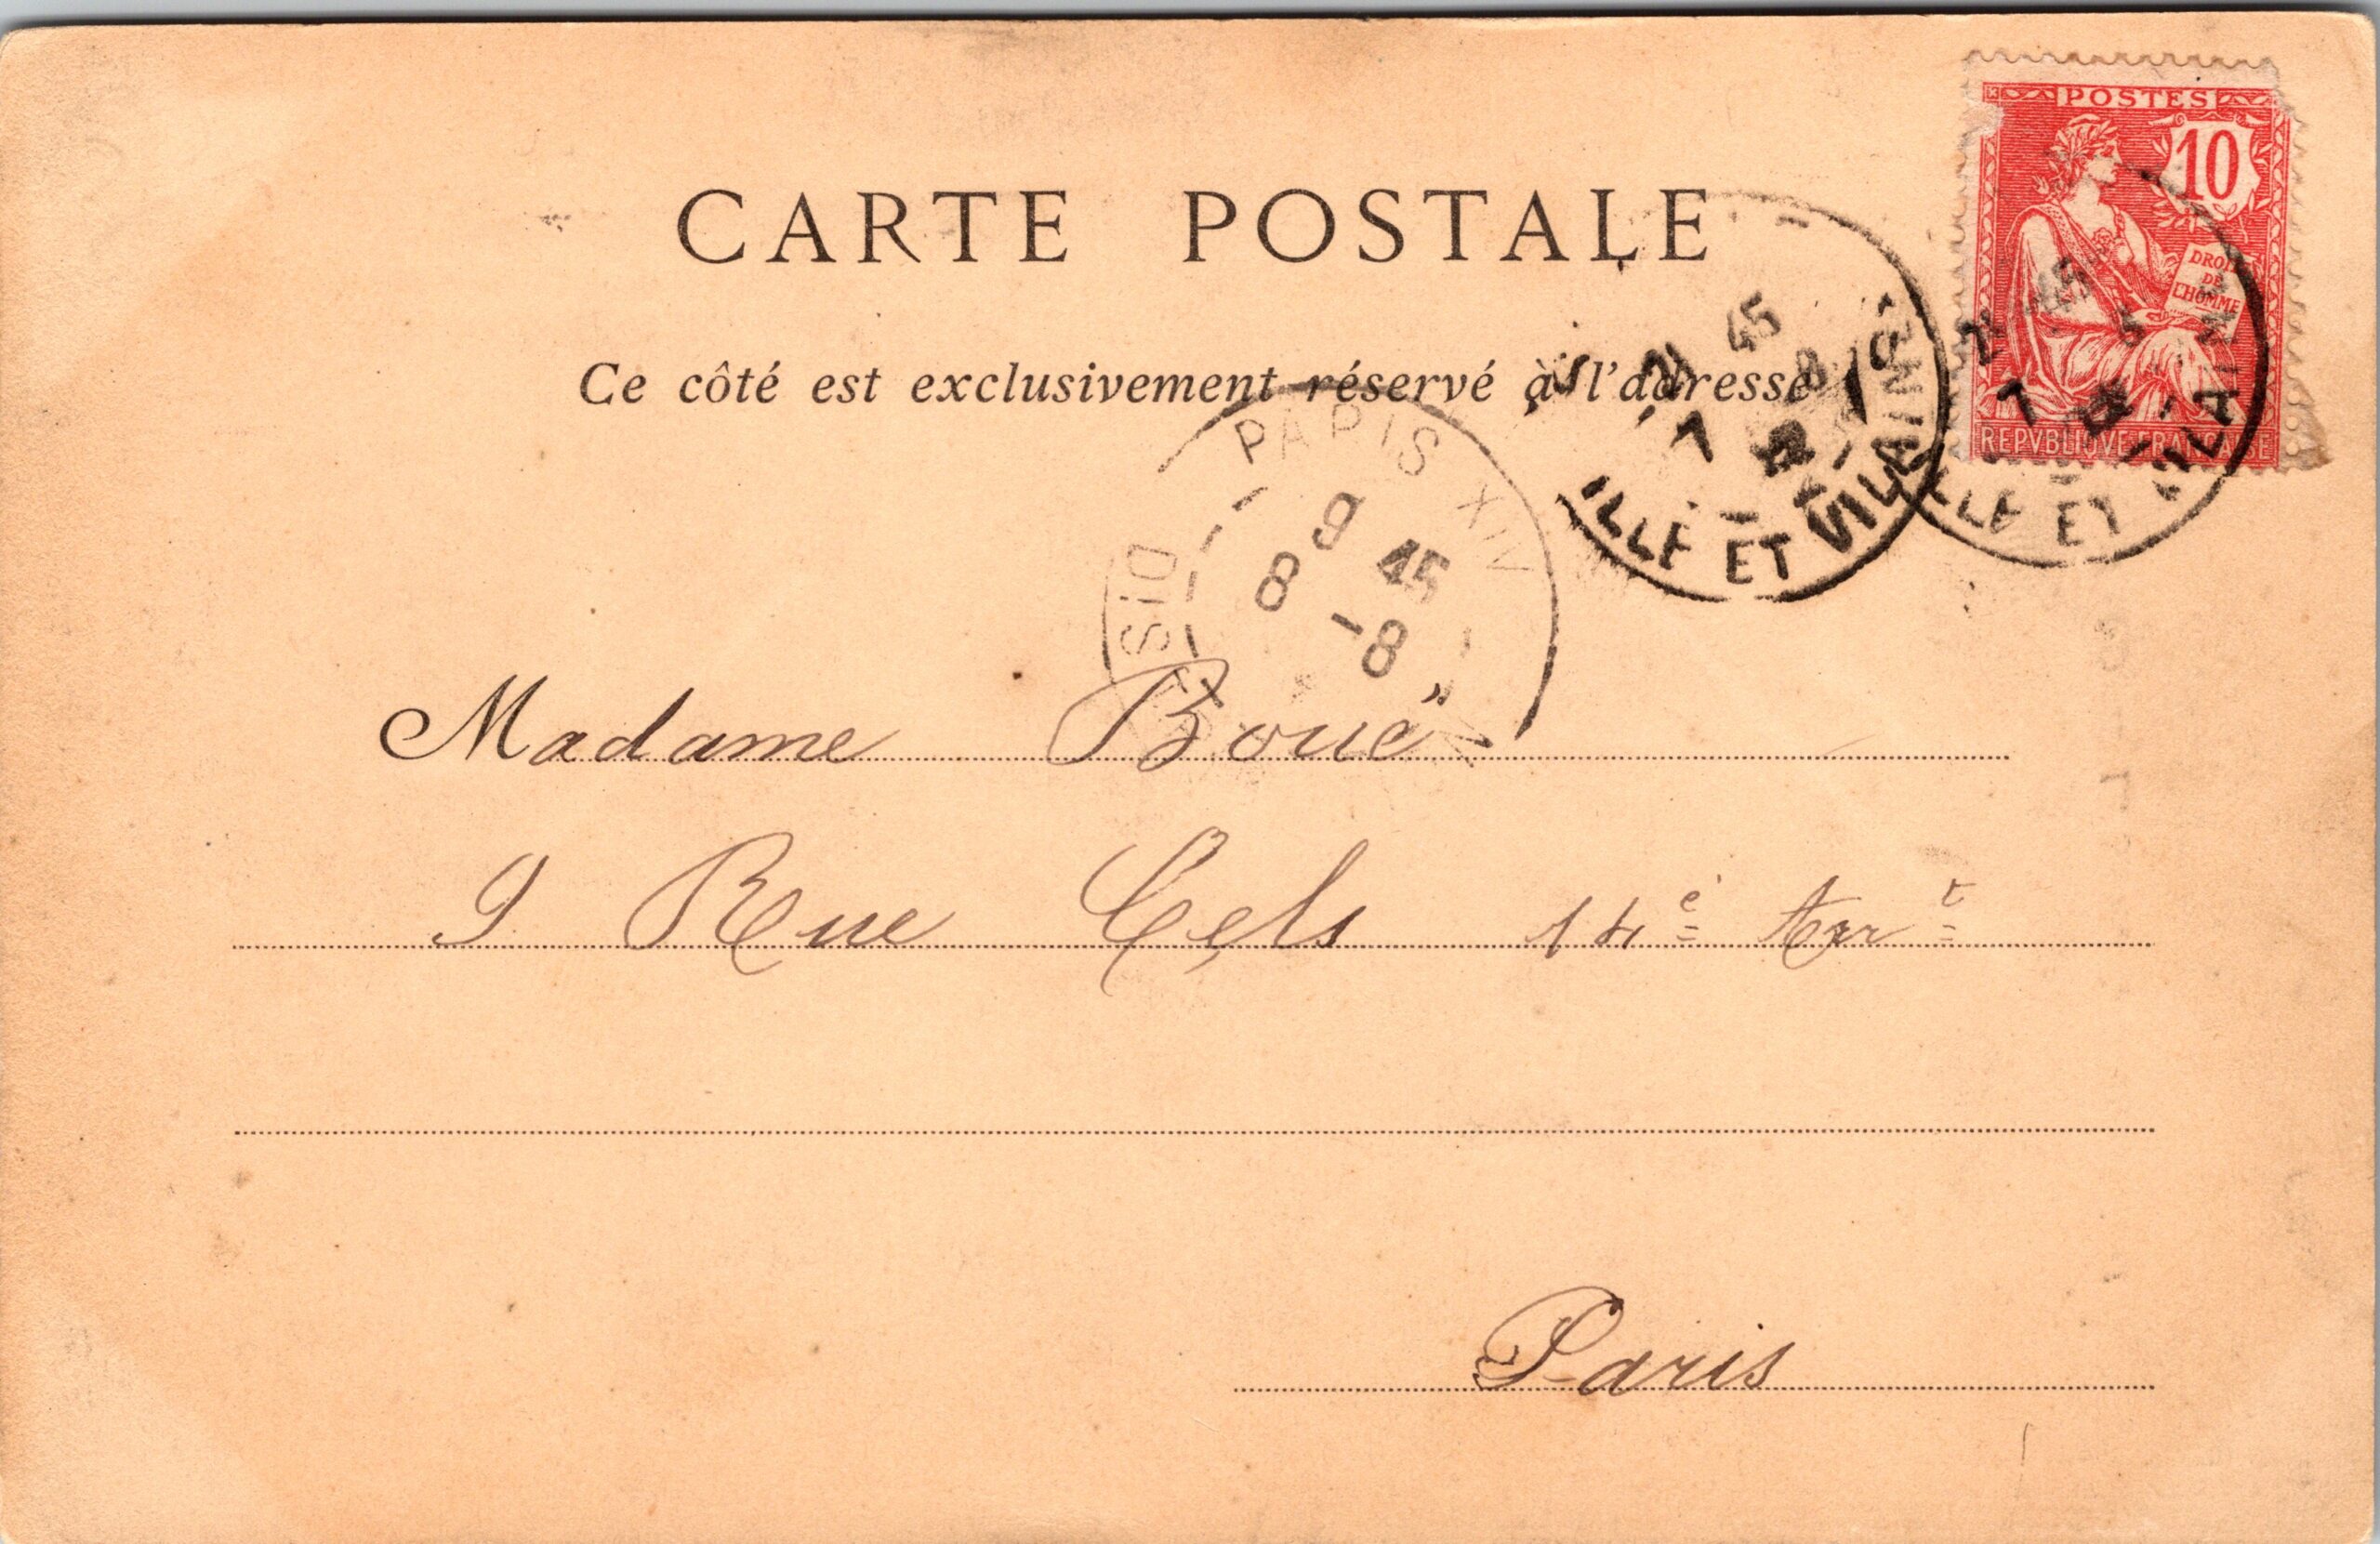 POSTES
10
DROITS
DE
L'HOMME
REPVBLIQVE FRANCAISE
CARTE POSTALE
Ce côté est exclusivement réservé à l'adresse
21 45
7 8
ILLE ET VILAINE
ILLE ET VILAINE
PARIS XIV
9 45
8 -8
DIS
Madame Bouë
9 Rue Cels 14e Arrt
Paris